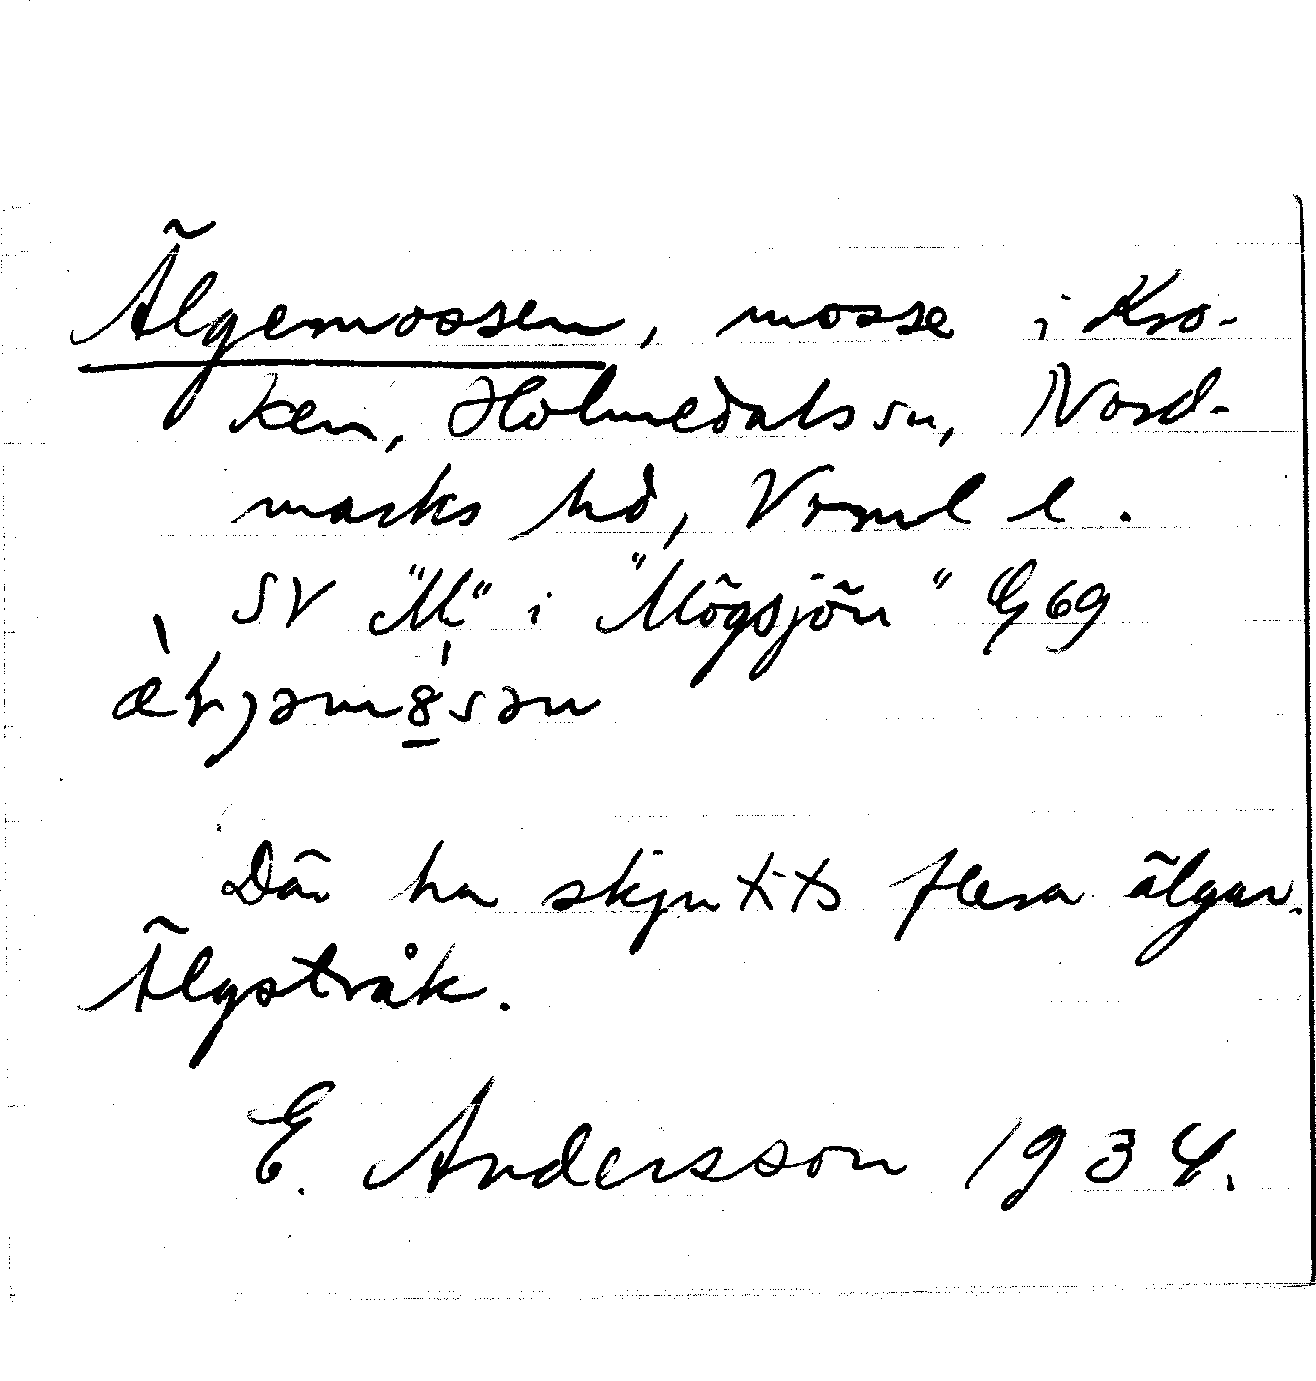 Älgemossen, mosse i Kro-
ken, Holmedals sn, Nord-
marks hd, Vrml l.
SV "M" i "Mögsjön" G 69
Där ha skjutits flera älgar.
Älgstråk.
E. Andersson 1934.